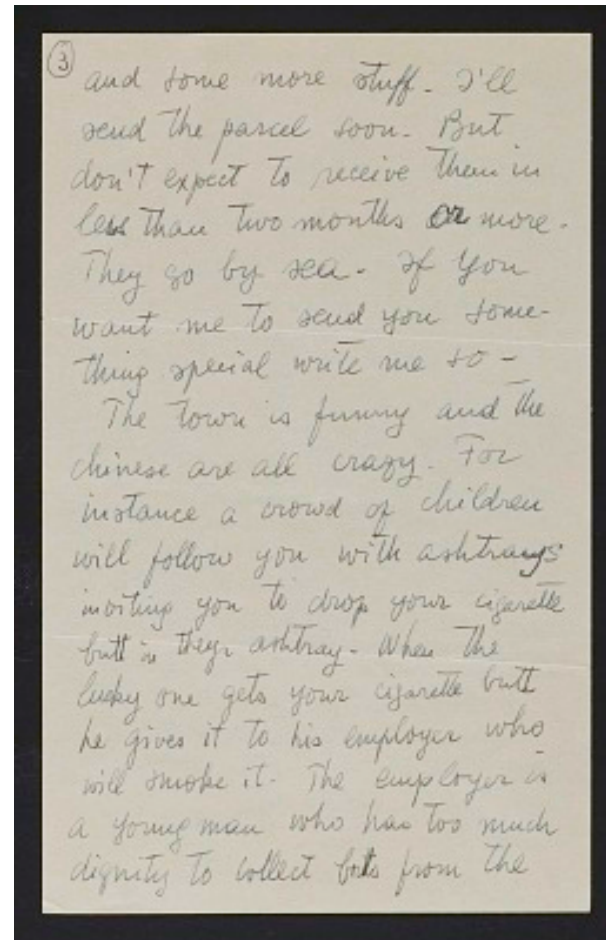 3
and some more stuff. I'll
send the parcel soon. But
don't expect to receive them in
less than two months or more.
They go by sea. If you
want me to send you some-
thing special write me so -
The town is funny and the
chinese are all crazy. For
instance a crowd of children
will follow you with ashtrays
inviting you to drop your cigarette
butt in they ashtray. When the
lucky one gets your cigarette butt
he gives it to his employer who
will smoke it. The employer is
a young man who has too much
dignity to collect buts from the